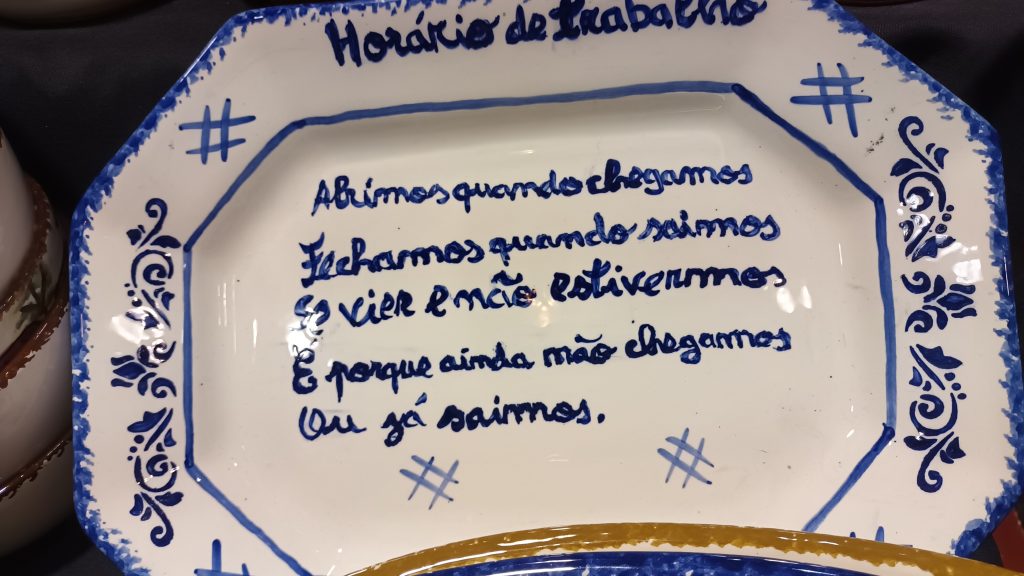 Horário de trabalho
Abrimos quando chegamos
Fechamos quando saimos
Se vier e não estivermos
É porque ainda não chegamos
Ou já saimos.